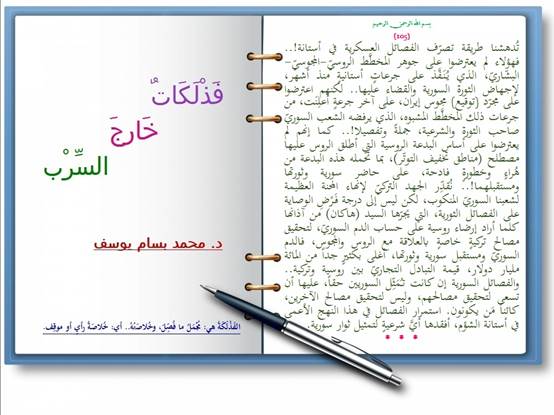 بسم الله الرحمن الرحيم
(105)
تُدهشنا طريقة تصرّف الفصائل العسكرية في أستانة!..
فهؤلاء لم يعترضوا على جوهر المخطَّط الروسيّ-المجوسيّ-
البشّاريّ، الذي يُنَفَّذ على جرعاتٍ أستانيةٍ منذ أشهر،
لإجهاض الثورة السورية والقضاء عليها.. لكنهم اعترضوا
على مجرّد (توقيع) مجوس إيران، على آخر جرعةٍ أُعلِنَت، من
جرعات ذلك المخطَّط المشبوه، الذي يرفضه الشعب السوريّ
صاحب الثورة والشرعية، جملةً وتفصيلاً!.. كما إنهم لم
يعترضوا على أساس البدعة الروسية التي أطلق الروس عليها
مصطلح (مناطق تخفيف التوتّر)، بما تحمله هذه البدعة من
هُراءٍ وخطورةٍ فادحة، على حاضر سورية وثورتها
ومستقبلهما!.. نُقدِّر الجهد التركيّ لإنهاء المحنة العظيمة
لشعبنا السوريّ المنكوب، لكن ليس إلى درجة فَرْض الوصاية
على الفصائل الثورية، التي يجرّها السيد (هاكان) من آذانها
كلما أراد إرضاء روسية على حساب الدم السوريّ، لتحقيق
مصالح تركيةٍ خاصةٍ بالعلاقة مع الروس والمجوس، فالدم
السوريّ ومستقبل سورية وثورتها، أغلى بكثيرٍ جداً من المائة
مليار دولار، قيمة التبادل التجاريّ بين روسية وتركية..
والفصائل السورية إن كانت تُمثِّل السوريين حقاً، عليها أن
تسعى لتحقيق مصالحهم، وليس لتحقيق مصالح الآخرين،
كائناً مَن يكونون. استمرار الفصائل في هذا النهج الأعمى
في أستانة الشؤم، أفقدها أيَّ شرعيةٍ لتمثيل ثوار سورية.
فَذْلَكَاتٌ
خَارجَ
السِّرْب
د. محمد بسام يوسف
الفَذْلَكَة هي: مُجْمَلُ ما فُصِّلَ، وخُلاصَتُهُ.. أي: خُلاصَةُ رأيٍ أو موقِف.